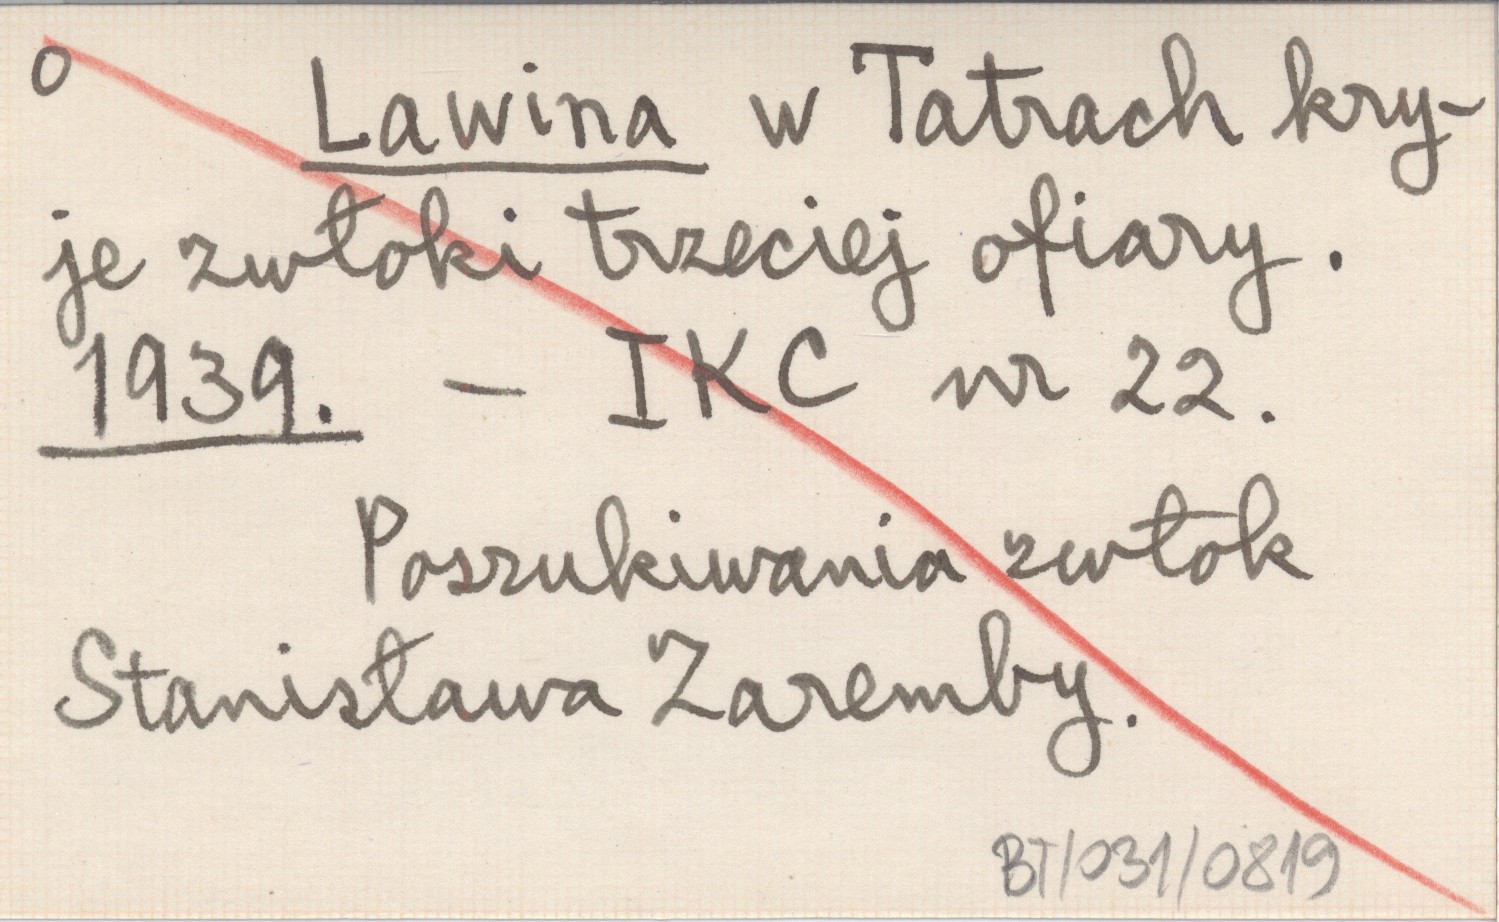 o Lawina w Tatrach kry-
je zwłoki trzeciej ofiary.
1939. – IKC nr 22.
Poszukiwania zwłok
Stanisława Zaremby.
BT/031/0819